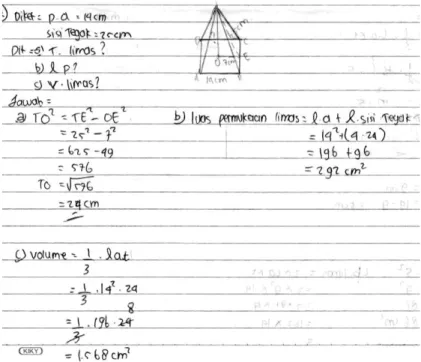 Diket = p.a = 14cm
sisi Tegak = 25cm
Dit = a) T. limas?
b) l p?
c) V. limas?
Jawab =
a) TO² = TE² - OE²
= 25² - 7²
= 625 - 49
= 576
TO = √576
= 24 cm
b) luas permukaan limas = l a + l. sisi Tegak
= 14² + (4 . 24)
= 196 + 96
= 292 cm²
c) Volume = 1/3 . la t
= 1/3 . 14² . 24
8
= 1/3 . 196 . 24
= 1.568 cm²
14cm
7cm
E
KIKY